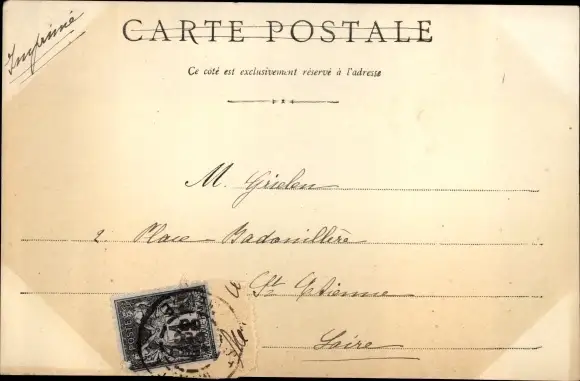 Imprimé
CARTE POSTALE
Ce côté est exclusivement réservé à l'adresse
M.
2. Place Badouillère
St Etienne
Loire
POSTES